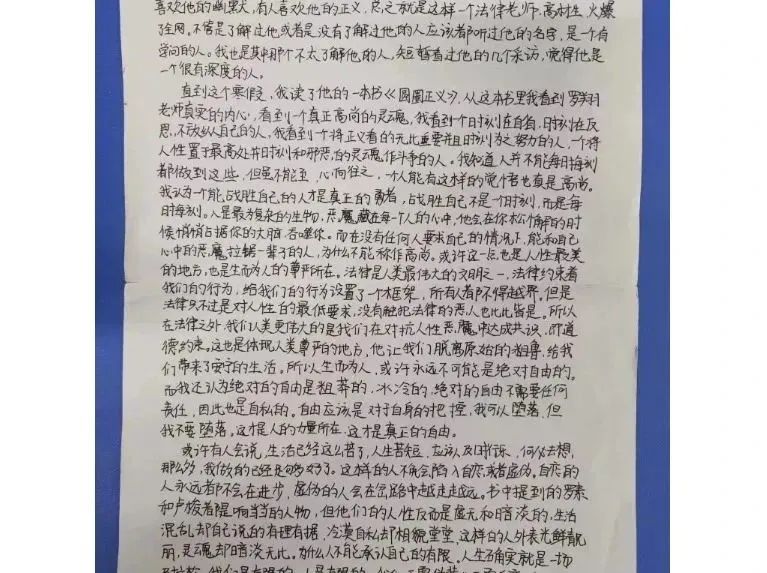 喜欢他的幽默,有人喜欢他的正义,总之就是这样一个法律老师,高材生,火爆
了全网,不管是了解过他或者是没有了解过他的人应该都听过他的名字,是一个有
学问的人。我也是其中那个不太了解他的人,短暂看过他的几个采访,觉得他是
一个很有深度的人。
直到这个寒假,我读了他的一本书《圆圈正义》,从这本书里我看到罗翔
老师真实的内心,看到一个真正高尚的灵魂,我看到个时刻在自省,时刻在反
思,不放纵自己的人,我看到一个将正义看的无比重要并且时刻为之努力的人,一个将
人性置于最高处并时刻和邪恶的灵魂作斗争的人。我知道人并不能每时每刻
都做到这些,但虽不能至,心向往之,一个人能有这样的觉悟者也真是高尚。
我认为一个能战胜自己的人才是真正的勇者,战胜自己不是一个时刻,而是每
时每刻。人是最为复杂的生物,恶魔藏在每一个人的心中,他会在你松懈的时
候悄悄占据你的大脑,吞噬你。而在没有任何人要求自己的情况下,能和自己
心中的恶魔拉锯一辈子的人,为什么不能称作高尚。或许这一点也是人性最美
的地方,也是生而为人的尊严所在。法律是人类最伟大的文明之一,法律约束着
我们的行为,给我们的行为设置了一个框架,所有人都不得越界。但是
法律只不过是对人性的最低要求,没有触犯法律的恶人也比比皆是。所以
在法律之外,我们人类更伟大的是我们在对抗人性恶魔中达成共识,即道
德约束。这也是体现人类尊严的地方,他让我们脱离原始的粗鲁,给我
们带来了安宁的生活。所以生而为人,或许永远不可能是绝对自由的。
而我还认为绝对的自由是粗莽的,冰冷的,绝对的自由不需要任何
责任,因此也是自私的。自由应该是对于自身的把握,我可以堕落,但
我不要堕落。这才是人的力量所在,这才是真正的自由。
或许有人会说,生活已经这么苦了,人生苦短,应该及时行乐,何必去想
那么多,我做的已经足够好了。这样的人不免会陷入自恋或者虚伪。自恋的
人永远都不会在进步,虚伪的人会在岔路中越走越远。书中提到的罗素
和卢梭者是响当当的人物,但他们的人性反而是虚无和暗淡的,生活
混乱却自己说的有理有据,冷漠自私却相貌堂堂,这样的人外表光鲜靓
丽,灵魂却暗淡无比。为什么人不能承认自己的有限。人生确实就是一场